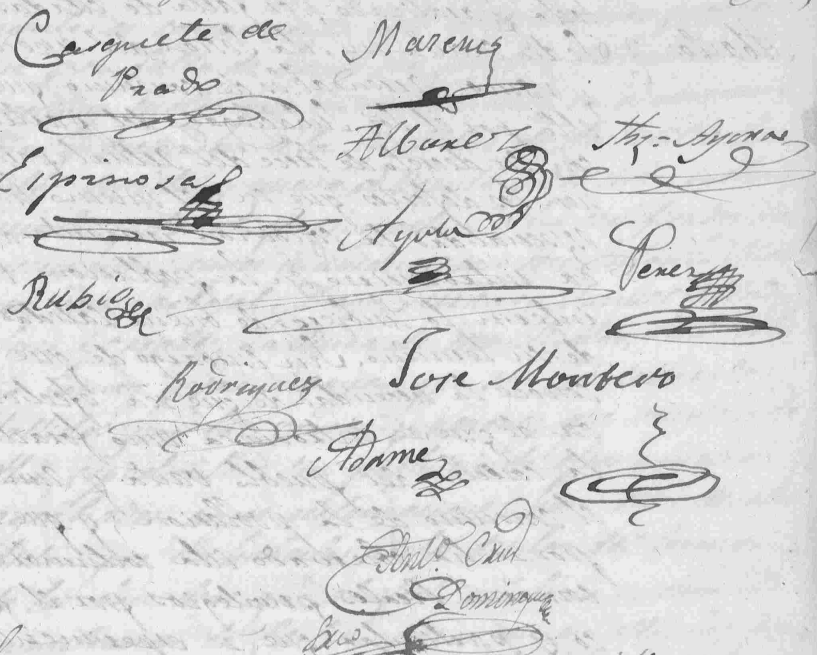 Casquete de
Prado
Marcin
Albarez
Espinosa
Ayala
Perez
Rubio
Rodriguez
Jose Montero
Adame
Antº Cruz
Dominguez